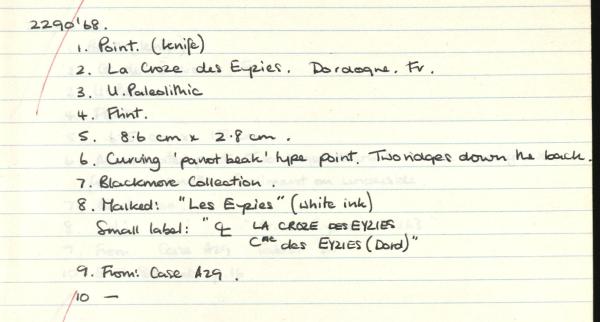 2290'68.
1. Point. (knife)
2. La Croze des Eyzies. Dordogne. Fr.
3. U. Paleolithic
4. Flint.
5. 8.6 cm x 2.8 cm.
6. Curving 'parrot beak' type point. Two ridges down the back.
7. Blackmore Collection.
8. Marked: "Les Eyzies" (white ink)
Small label: " LA CROZE DES EYZIES
Cne des EYZIES (Dord)"
9. From: Case A29.
10 —